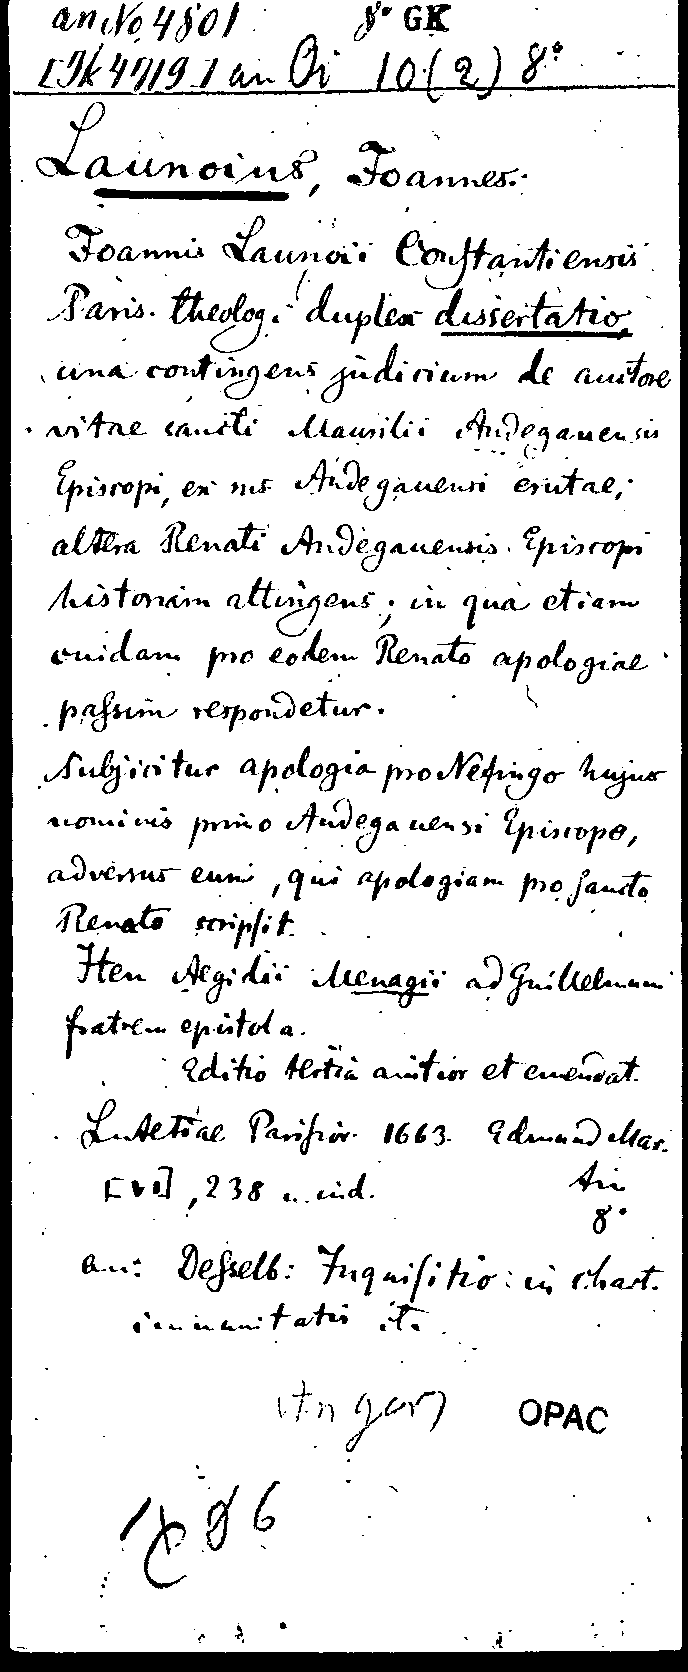 an No 4801 8° GK
[Jk 4719] an Qi 10(2) 8°
Launoius, Joannes.
Joannis Launoii Constantiensis
Paris. theolog. duplex dissertatio,
una contingens judicium de auctore
vitae sancti Maurilii Andegauensis
Episcopi, ex ms Andegauensi erutae,
altera Renati Andegauensis Episcopi
historiam attingens; in qua etiam
cuidam pro eodem Renato apologiae
passim respondetur.
Subjicitur apologia pro Nefingo hujus
nominis primo Andegauensi Episcopo,
adversus eum, qui apologiam pro sancto
Renato scripsit.
Item Aegidii Menagii ad Guillelmum
fratrem epistola.
Editio tertia auctior et emendat.
Lutetiae Parisior. 1663. Edmund Mar-
tin
[VI], 238 u. ind.
8°
an: Desselb: Inquisitio in chart.
immunitatis etc.
Angers OPAC